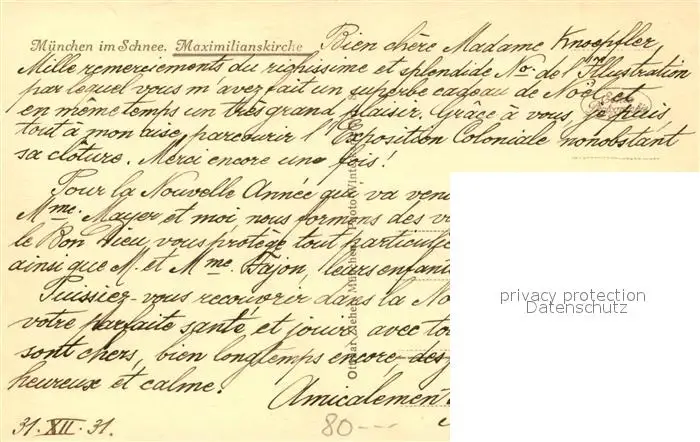 München im Schnee. Maximilianskirche
Bien chère Madame Knoepffer,
Mille remerciements du richissime et splendide No. de l'Illustration
par lequel vous m'avez fait un superbe cadeau de Noël et
en même temps un très grand plaisir. Grâce à vous, je puis
tout à mon aise, parcourir l'Exposition Coloniale nonobstant
sa clôture. Merci encore une fois!
Pour la Nouvelle Année qui va
Mme. Mayer et moi nous formons des
le Bon Dieu vous protège tout
ainsi que M. et Mme. Fajon, leurs
Puissiez-vous recouvrir dans la
votre parfaite santé et jouir avec
sont chers, bien longtemps encore
heureux et calme.
Amicalement
31.XII.31.
80
Ottmar Ziehen, München
privacy protection
Datenschutz